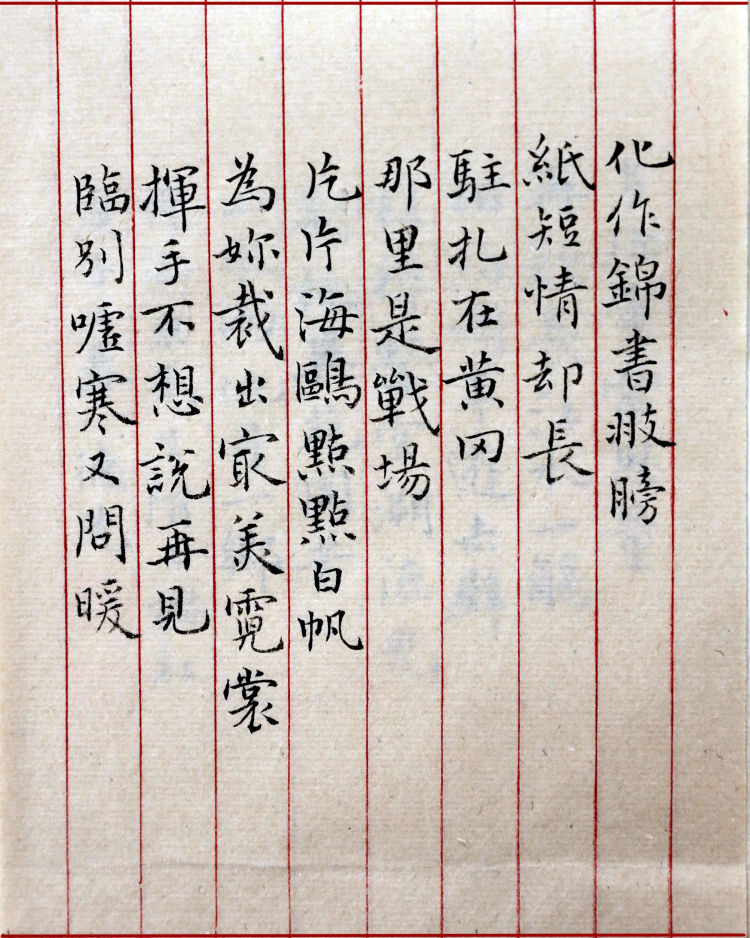 化作錦書翅膀
紙短情却長
駐扎在黄冈
那里是戰場
片片海鷗點點白帆
為妳裁出㝡美霓裳
揮手不想說再見
臨别嘘寒又問暖